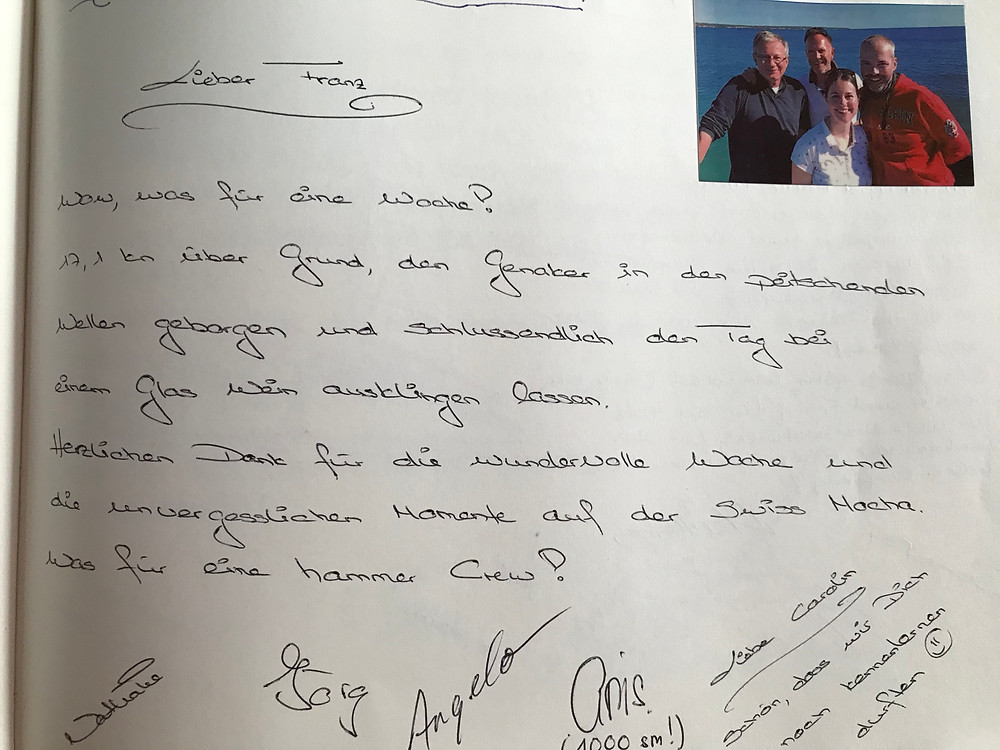 Lieber Franz
Wow, was für eine Woche!
17,1 kn über Grund, den Genaker in den peitschenden
Wellen geborgen und schlussendlich den Tag bei
einem Glas Wein ausklingen lassen.
Herzlichen Dank für die wundervolle Woche und
die unvergesslichen Momente auf der Swiss Mocha.
Was für eine hammer Crew!
Nathalie
Jörg
Angelo
(1000 sm!)
Liebe Carolin
Schön, dass wir Dich
noch kennenlernen
durften